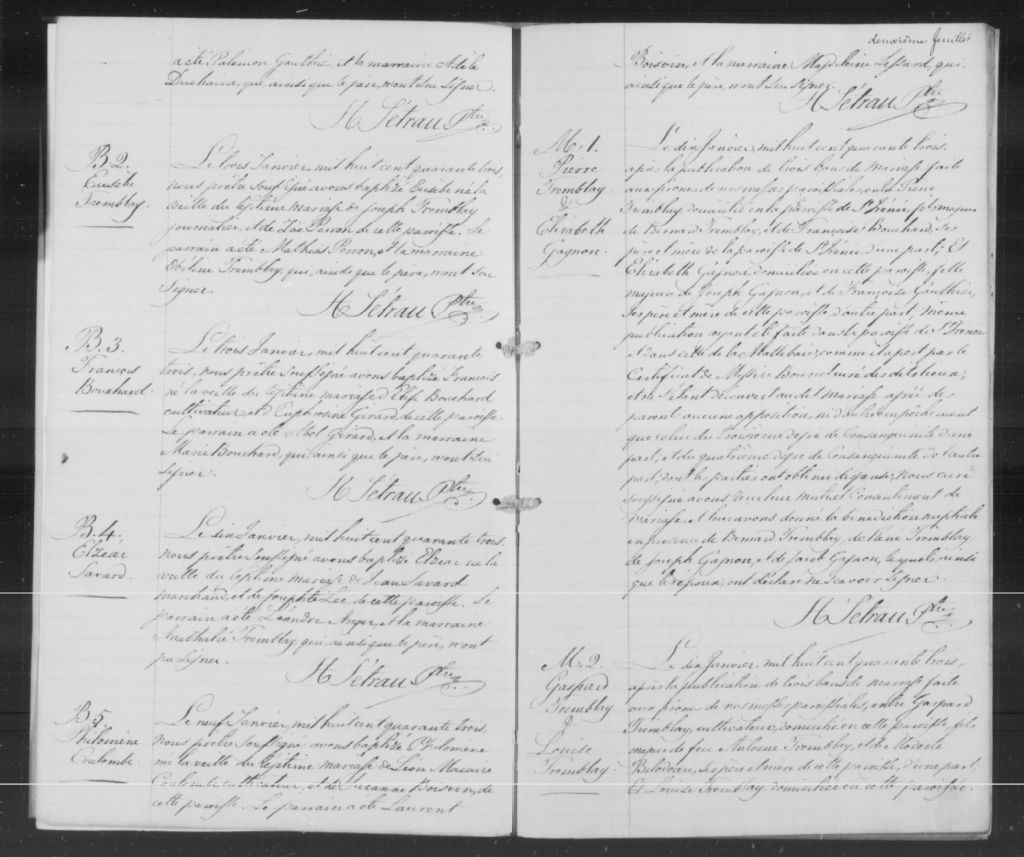 a été Palémon Gauthier, et la marraine Adèle
Duchaine, qui, ainsi que le père, n'ont su signer.
H Sétrau Ptre
B. 2.
Eusèbe
Tremblay.
Le trois Janvier, mil huit cent quarante trois,
nous prêtre soussigné avons baptisé Eusèbe né la
veille du légitime mariage de Joseph Tremblay
journalier, et de Zoé Perron de cette paroisse. Le
parrain a été Mathias Perron, et la marraine
Tremblay, qui, ainsi que le père, n'ont su
signer.
H Sétrau Ptre
B. 3.
François
Bouchard.
Le trois Janvier, mil huit cent quarante
trois, nous prêtre soussigné avons baptisé François
né la veille du légitime mariage d'Elie Bouchard
cultivateur et d'Euphrosine Girard, de cette paroisse.
Le parrain a été Abel Girard, et la marraine
Marie Bouchard, qui, ainsi que le père, n'ont su
signer.
H Sétrau Ptre
B. 4.
Elzéar
Savard.
Le dix Janvier, mil huit cent quarante trois,
nous prêtre soussigné avons baptisé Elzéar né la
veille du légitime mariage de Jean Savard
marchand, et de Josephte Lee, de cette paroisse. Le
parrain a été Léandre Anger, et la marraine
Tremblay, qui, ainsi que le père, n'ont
pu signer.
H Sétrau Ptre
B. 5.
Philomène
Coulombe.
Le neuf Janvier, mil huit cent quarante trois,
nous prêtre soussigné avons baptisé Philomène
née la veille du légitime mariage de Léon Macaire
Coulombe cultivateur, et de Suzanne Boivin, de
cette paroisse. Le parrain a été Laurent
deuxième feuillet
Boisvin, et la marraine Magdeleine Lessard, qui,
ainsi que le père, n'ont su signer.
H Sétrau Ptre
M. 1.
Pierre
Tremblay
&
Elizabeth
Gagnon.
Le dix Janvier, mil huit cent quarante trois,
après la publication de trois bans de mariage faite
aux prônes de nos messes paroissiales, entre Pierre
Tremblay, domicilié en la paroisse de St Irénée, fils majeur
de Bernard Tremblay, et de Françoise Bouchard, ses
père et mère de la paroisse de St Irénée d'une part; Et
Elizabeth Gagnon, domiciliée en cette paroisse, fille
majeure de Joseph Gagnon, et de Françoise Gauthier,
ses père et mère de cette paroisse, d'autre part; même
publication ayant été faite dans la paroisse de St Irénée
et dans celle de la Malbaie, comme il apert par le
Certificat de Messire Bourret curé des dits lieux;
et ne s'étant découvert au dit mariage après des
parent aucune opposition, ni d'autre empêchement
que celui du troisième degré de Consanguinité d'une
part, et du quatrième degré de Consanguinité de l'autre
part, dont les parties ont obtenu dispense; nous curé
soussigné avons reçu leur mutuel Consentement de
mariage, et leur avons donné la bénédiction nuptiale
en présence de Bernard Tremblay, de Tremblay,
de Joseph Gagnon, et de Jacob Gagnon, lesquels, ainsi
que les époux, ont déclaré ne savoir signer.
H Sétrau Ptre
M. 2.
Gaspard
Tremblay
&
Louise
Tremblay.
Le dix Janvier, mil huit cent quarante trois,
après la publication de trois bans de mariage faite
aux prônes de nos messes paroissiales, entre Gaspard
Tremblay, cultivateur, domicilié en cette paroisse, fils
majeur de feu Antoine Tremblay, et de Modeste
Bilodeau, ses père et mère de cette paroisse, d'une part;
Et Louise Tremblay, domiciliée en cette paroisse,